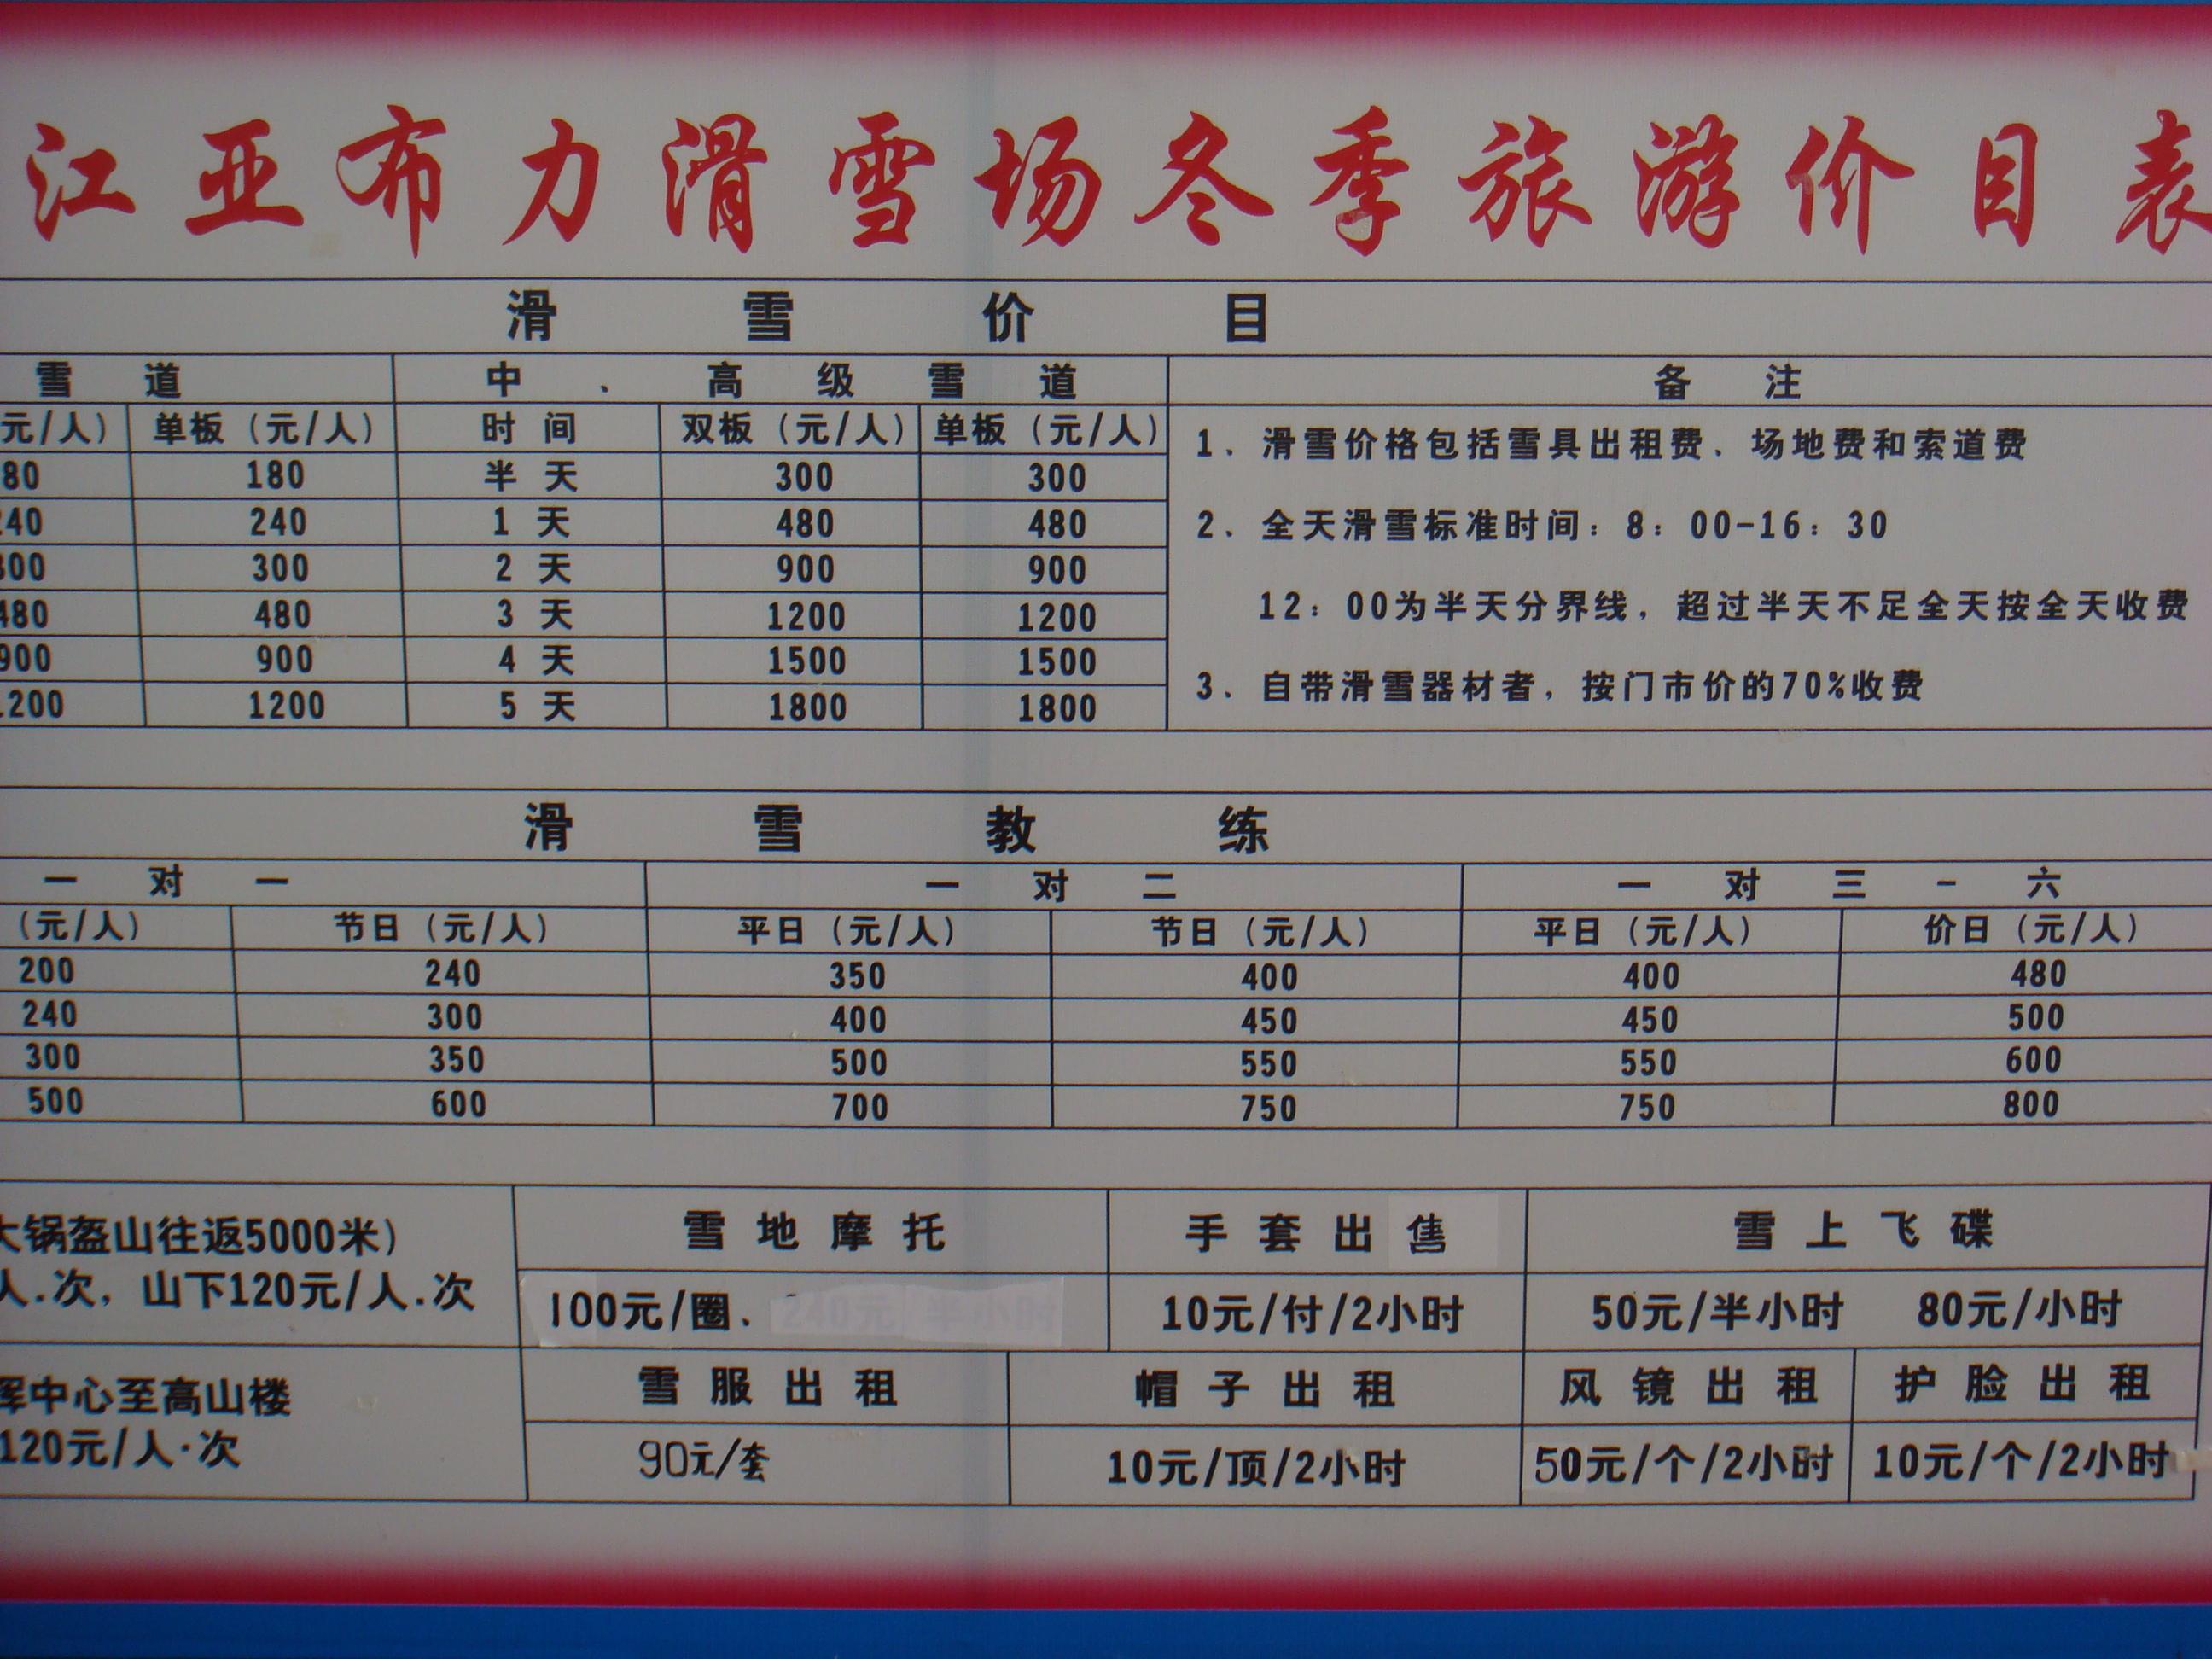 江亚布力滑雪场冬季旅游价目表
滑雪价目
雪道 中、高级雪道 备注
元/人) 单板(元/人) 时间 双板(元/人) 单板(元/人)
80 180 半天 300 300
40 240 1天 480 480
300 300 2天 900 900
480 480 3天 1200 1200
900 900 4天 1500 1500
1200 1200 5天 1800 1800
1、滑雪价格包括雪具出租费、场地费和索道费
2、全天滑雪标准时间：8：00-16：30
12：00为半天分界线，超过半天不足全天按全天收费
3、自带滑雪器材者，按门市价的70%收费
滑雪教练
一对一 一对二 一对三-六
(元/人) 节日(元/人) 平日(元/人) 节日(元/人) 平日(元/人) 价日(元/人)
200 240 350 400 400 480
240 300 400 450 450 500
300 350 500 550 550 600
500 600 700 750 750 800
大锅盔山往返5000米)
人.次，山下120元/人.次
雪地摩托 手套出售 雪上飞碟
100元/圈、240元/半小时 10元/付/2小时 50元/半小时 80元/小时
挥中心至高山楼
120元/人·次
雪服出租 帽子出租 风镜出租 护脸出租
90元/套 10元/顶/2小时 50元/个/2小时 10元/个/2小时